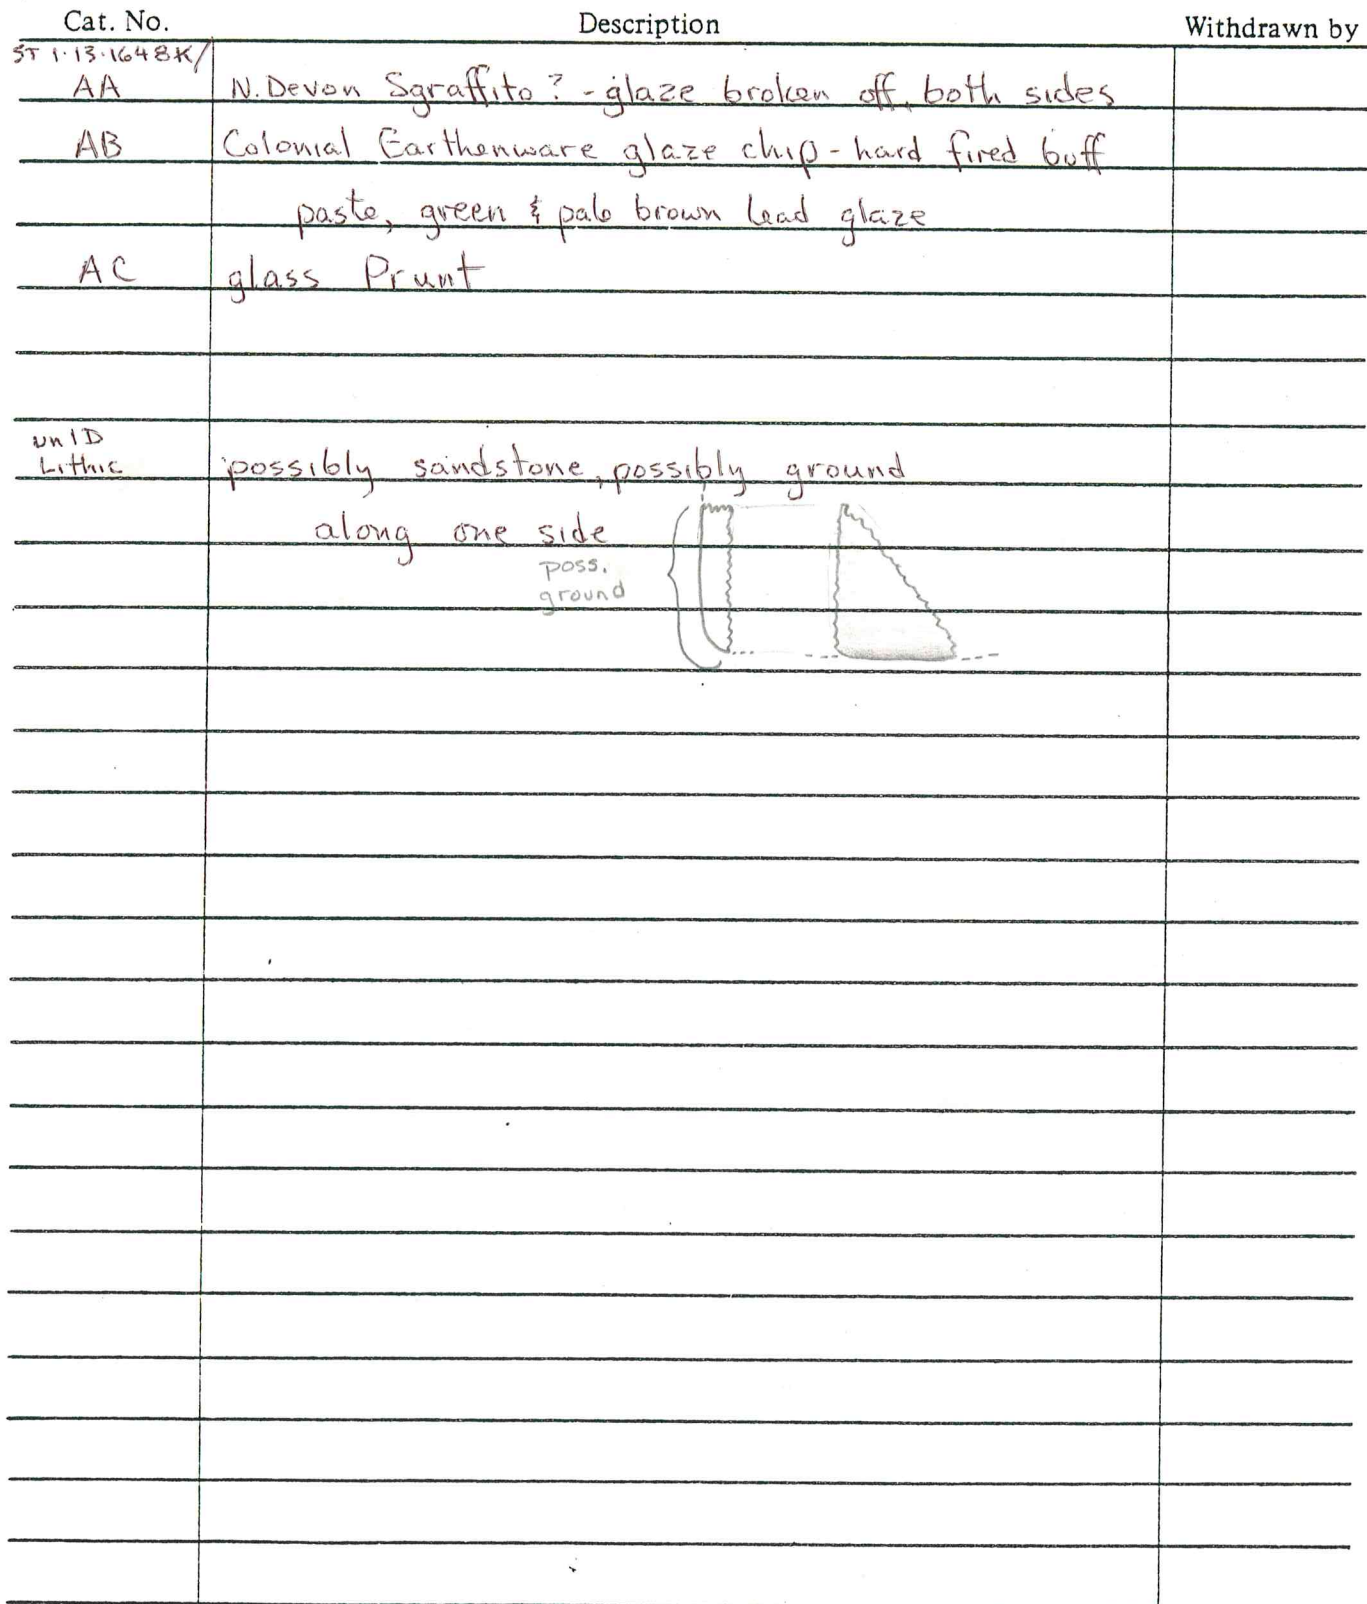 Cat. No. Description Withdrawn by
ST 1-13-1648K/
AA N. Devon Sgraffito? - glaze broken off, both sides
AB Colonial Earthenware glaze chip - hard fired buff
paste, green & pale brown lead glaze
AC glass Prunt
un ID
Lithic possibly sandstone, possibly ground
along one side
poss.
ground